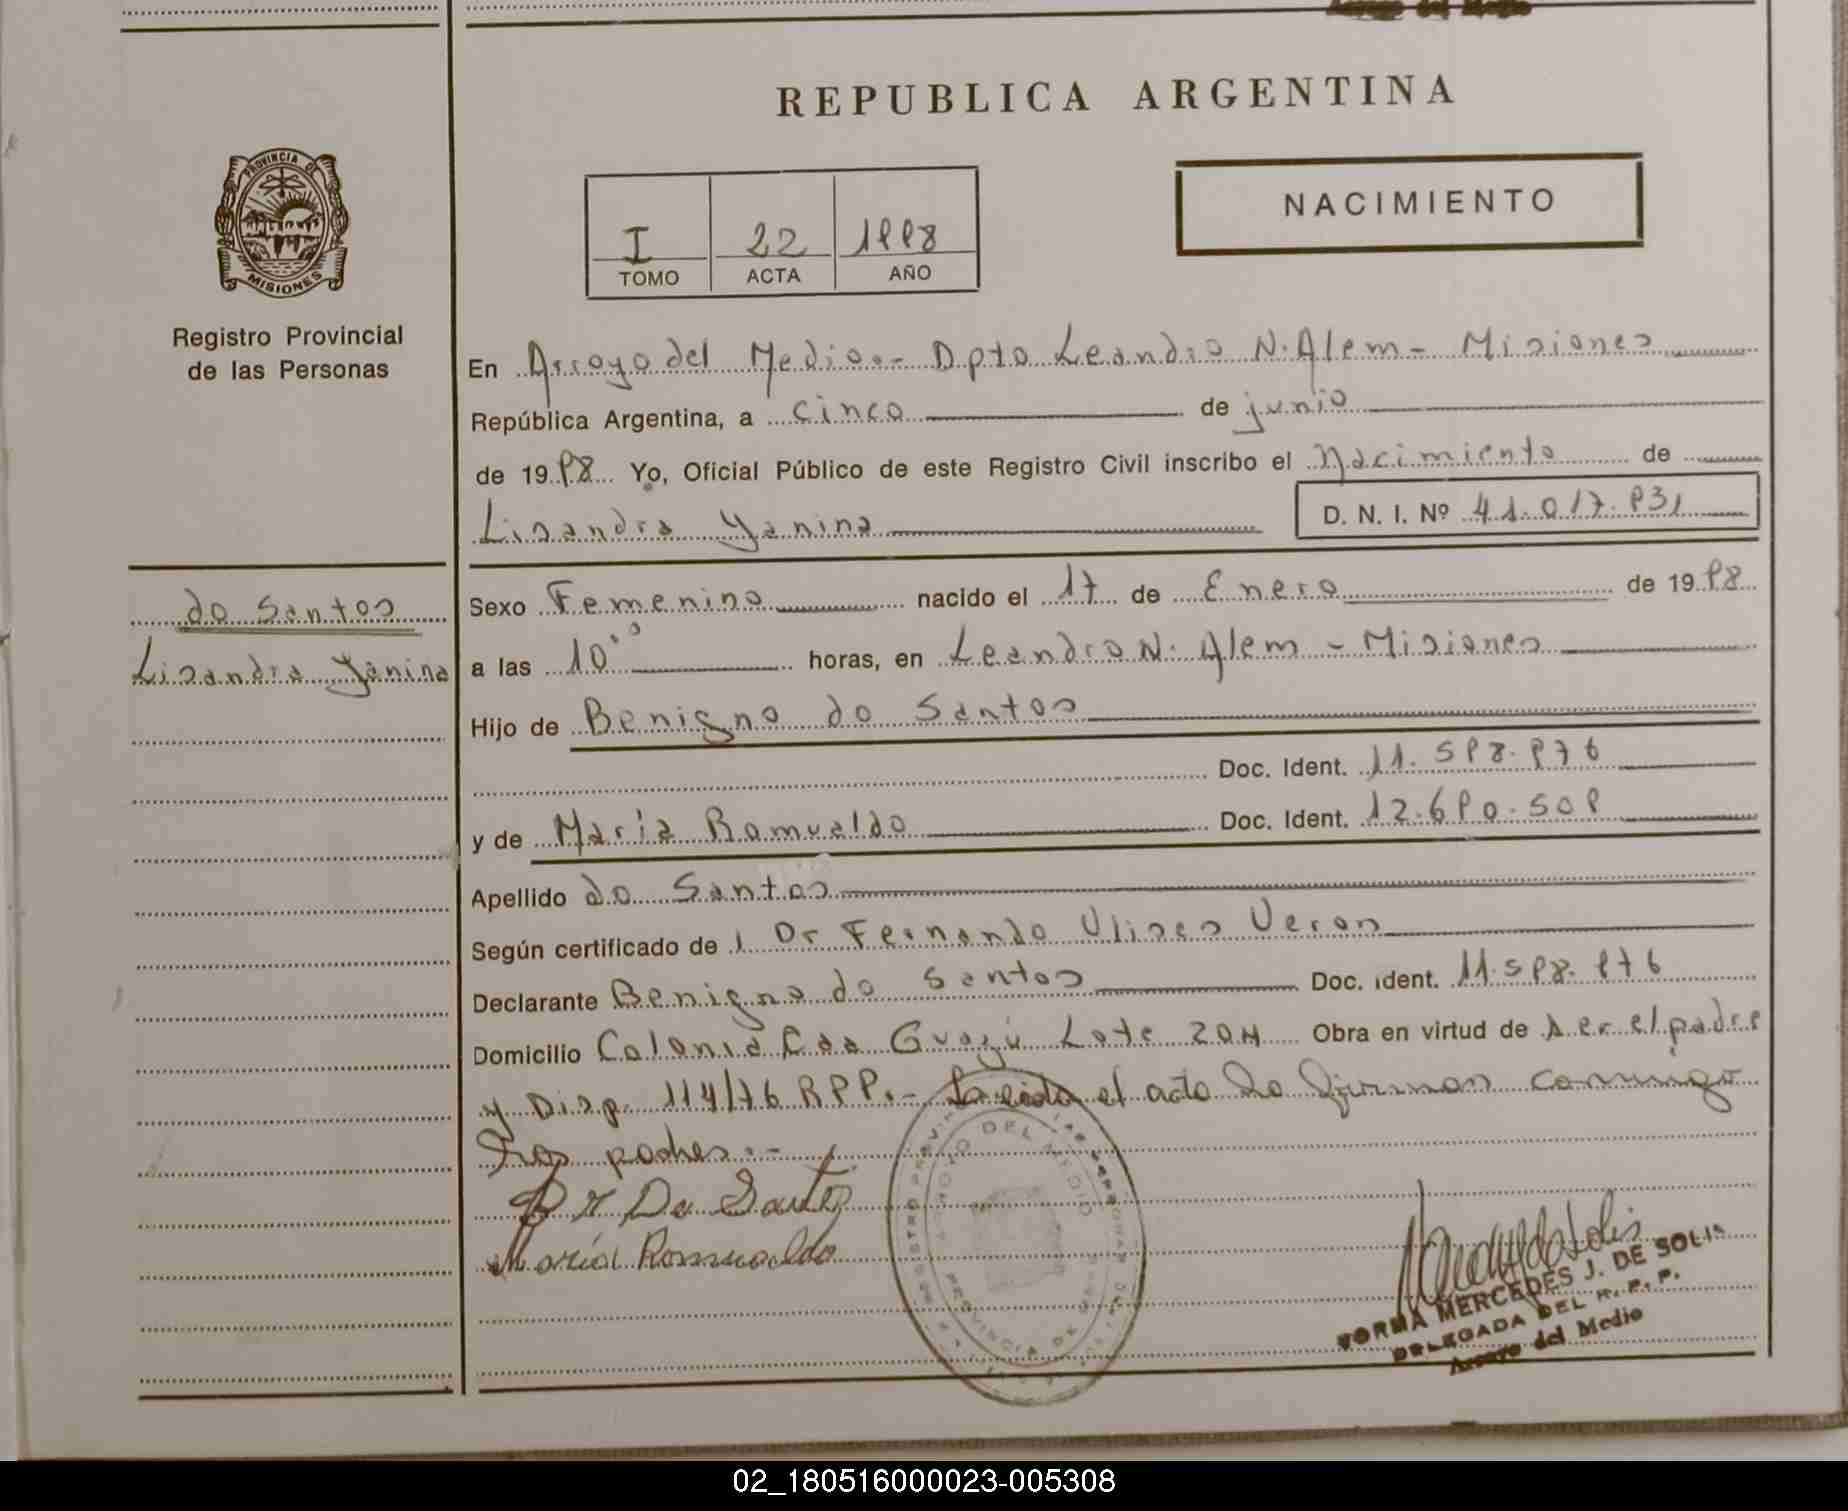 REPUBLICA ARGENTINA
PROVINCIA DE MISIONES
Registro Provincial
de las Personas
I 22 1998
TOMO ACTA AÑO
NACIMIENTO
En Arroyo del Medio.- Dpto Leandro N. Alem - Misiones
República Argentina, a cinco de junio
de 1998 Yo, Oficial Público de este Registro Civil inscribo el Nacimiento de
Lisandra Yanina D. N. I. Nº 41.017.931
do Santos
Lisandra Yanina
Sexo Femenino nacido el 17 de Enero de 1998
a las 10°° horas, en Leandro N. Alem - Misiones
Hijo de Benigno do Santos
Doc. Ident. 11.598.976
y de María Romualdo Doc. Ident. 12.690.509
Apellido do Santos
Según certificado de l Dr Fernando Ulises Veron
Declarante Benigno do Santos Doc. Ident. 11.598.976
Domicilio Colonia Caa Guazú Lote 20H Obra en virtud de ser el padre
y Disp. 114/76 RPP.- Leida el acta la firman conmigo
los padres.-
Do Santos
María Romualdo
ARROYO DEL MEDIO
PROVINCIA DE
NORMA MERCEDES J. DE SOLIS
DELEGADA DEL R. P. P.
Arroyo del Medio
02_180516000023-005308